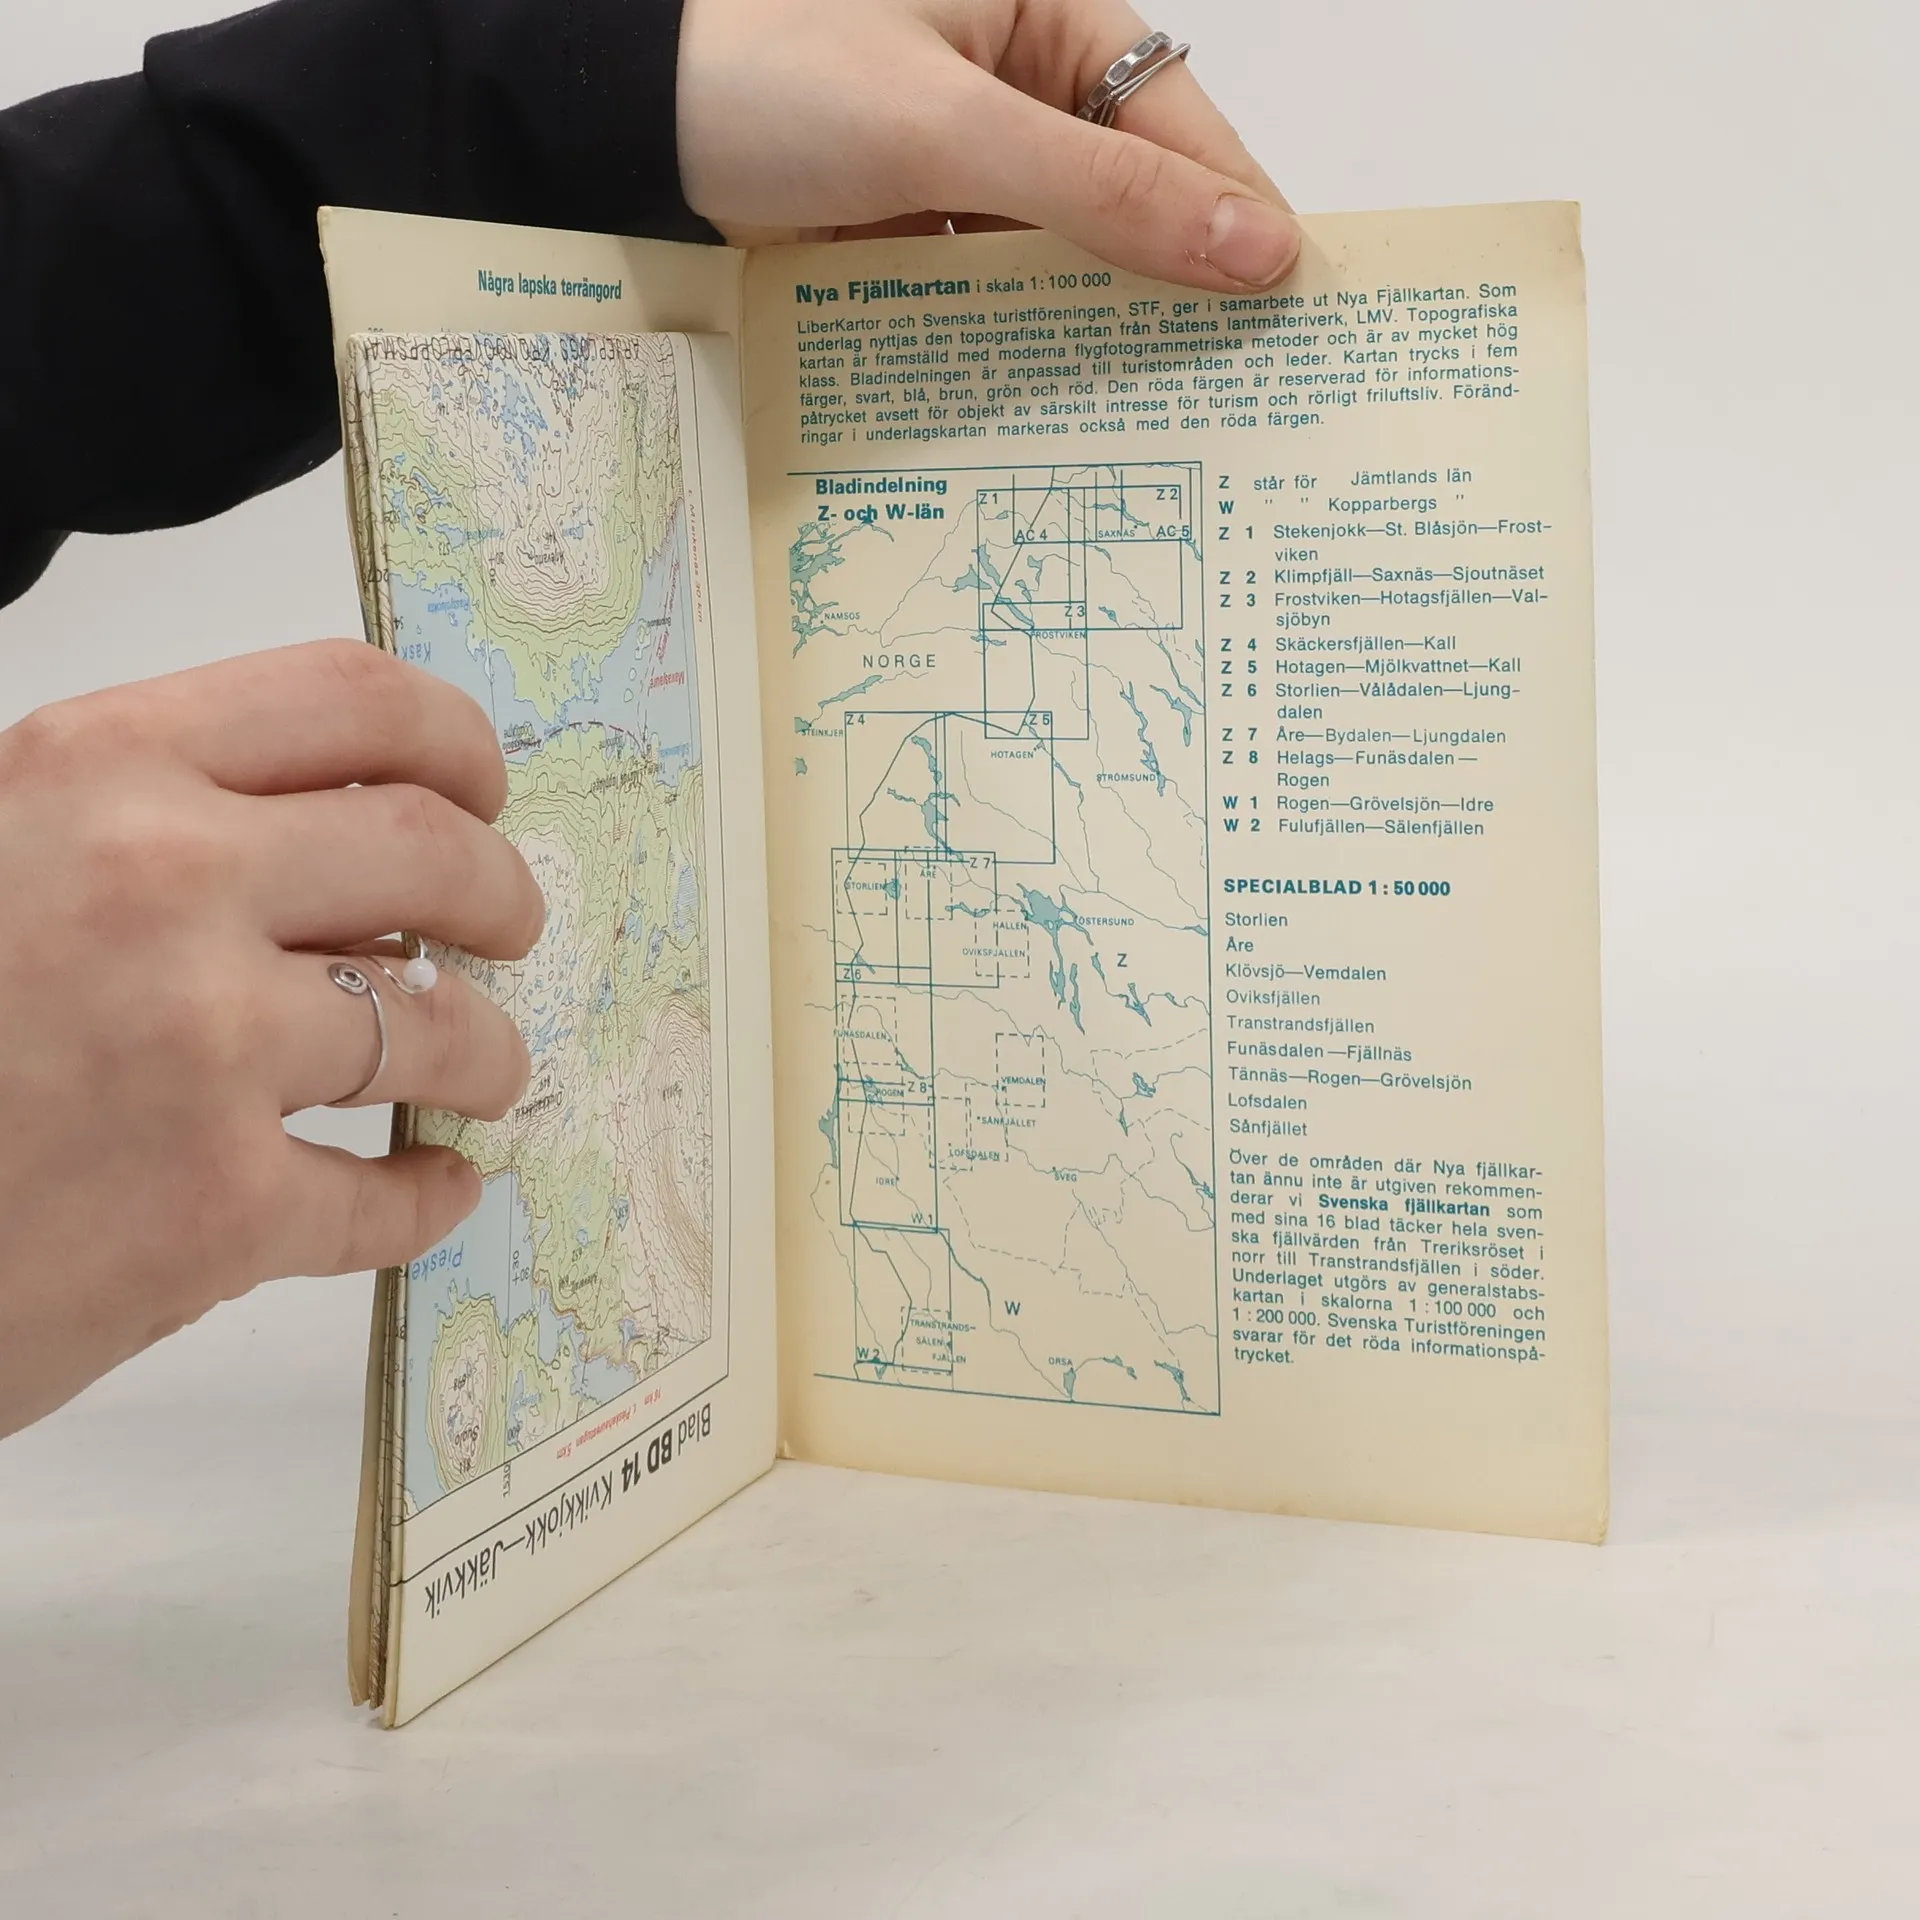 Några lapska terrängord
Blad BD 14 Kvikkjokk—Jäkkvik
Nya Fjällkartan i skala 1:100 000
LiberKartor och Svenska turistföreningen, STF, ger i samarbete ut Nya Fjällkartan. Som
underlag nyttjas den topografiska kartan från Statens lantmäteriverk, LMV. Topografiska
kartan är framställd med moderna flygfotogrammetriska metoder och är av mycket hög
klass. Bladindelningen är anpassad till turistområden och leder. Kartan trycks i fem
färger, svart, blå, brun, grön och röd. Den röda färgen är reserverad för informations-
påtrycket avsett för objekt av särskilt intresse för turism och rörligt friluftsliv. Föränd-
ringar i underlagskartan markeras också med den röda färgen.
Bladindelning
Z- och W-län
Z 1
Z 2
AC 4
SAXNÄS
AC 5
NAMSOS
Z 3
FROSTVIKEN
NORGE
Z 4
Z 5
STEINKJER
HOTAGEN
STRÖMSUND
Z 7
STORLIEN
ÅRE
HALLEN
ÖSTERSUND
OVIKSFJÄLLEN
Z
Z 6
FUNÄSDALEN
Z 8
ROGEN
VEMDALEN
SÅNFJÄLLET
LOFSDALEN
SVEG
IDRE
W 1
W
TRANSTRANDS-
SÄLEN
FJÄLLEN
W 2
ORSA
Z står för Jämtlands län
W " " Kopparbergs "
Z 1 Stekenjokk—St. Blåsjön—Frost-
viken
Z 2 Klimpfjäll—Saxnäs—Sjoutnäset
Z 3 Frostviken—Hotagsfjällen—Val-
sjöbyn
Z 4 Skäckersfjällen—Kall
Z 5 Hotagen—Mjölkvattnet—Kall
Z 6 Storlien—Vålådalen—Ljung-
dalen
Z 7 Åre—Bydalen—Ljungdalen
Z 8 Helags—Funäsdalen—
Rogen
W 1 Rogen—Grövelsjön—Idre
W 2 Fulufjällen—Sälenfjällen
SPECIALBLAD 1:50 000
Storlien
Åre
Klövsjö—Vemdalen
Oviksfjällen
Transtrandsfjällen
Funäsdalen—Fjällnäs
Tännäs—Rogen—Grövelsjön
Lofsdalen
Sånfjället
Över de områden där Nya fjällkar-
tan ännu inte är utgiven rekommen-
derar vi Svenska fjällkartan som
med sina 16 blad täcker hela sven-
ska fjällvärden från Treriksröset i
norr till Transtrandsfjällen i söder.
Underlaget utgörs av generalstabs-
kartan i skalorna 1:100 000 och
1:200 000. Svenska Turistföreningen
svarar för det röda informationspå-
trycket.